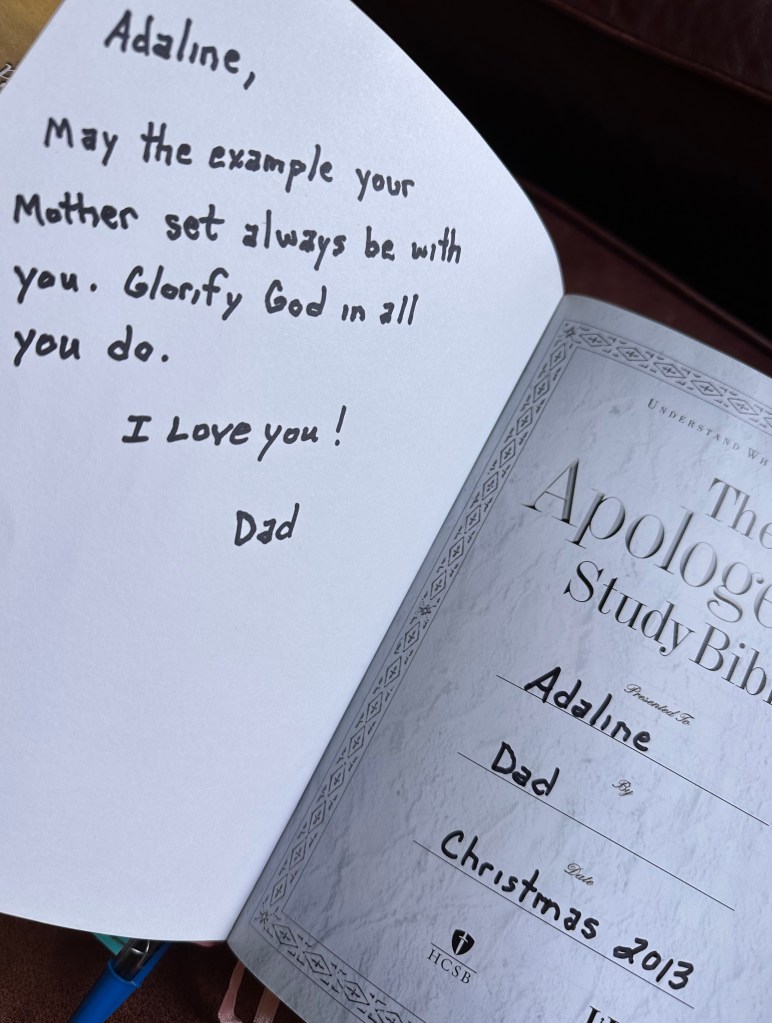 Adaline,
May the example your
Mother set always be with
you. Glorify God in all
you do.
I Love you!
Dad
UNDERSTAND
The
Study
Presented To
Adaline
By
Dad
Date
Christmas 2013
HCSB